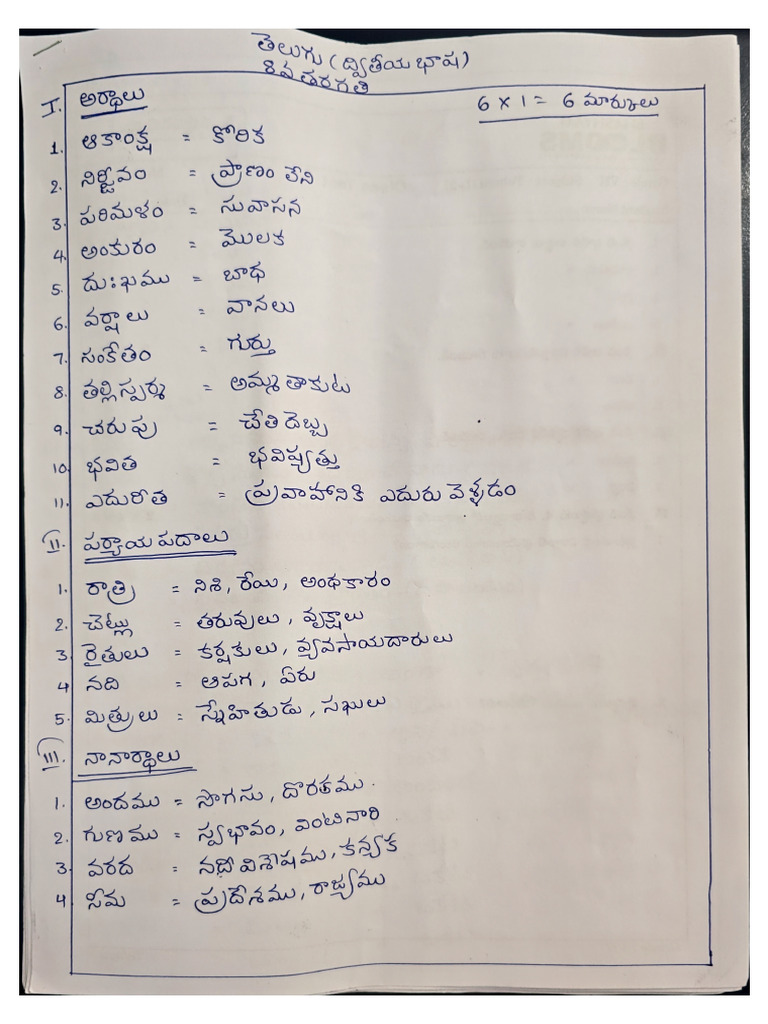 తెలుగు (ద్వితీయ భాష)
8వ తరగతి
I. అర్థాలు 6 x 1 = 6 మార్కులు
1. ఆకాంక్ష = కోరిక
2. నిర్జీవం = ప్రాణం లేని
3. పరిమళం = సువాసన
4. అంకురం = మొలక
5. దుఃఖము = బాధ
6. వర్షాలు = వానలు
7. సంకేతం = గుర్తు
8. తల్లి స్పర్శ = అమ్మ తాకుట
9. చరుపు = చేతి దెబ్బ
10. భవిత = భవిష్యత్తు
11. ఎదురీత = ప్రవాహానికి ఎదురు వెళ్ళడం
II. పర్యాయ పదాలు
1. రాత్రి = నిశి, రేయి, అంధకారం
2. చెట్లు = తరువులు, వృక్షాలు
3. రైతులు = కర్షకులు, వ్యవసాయదారులు
4 నది = ఆపగ, ఏరు
5. మిత్రులు = స్నేహితుడు, సఖులు
III. నానార్థాలు
1. అందము = సొగసు, దొరతము.
2. గుణము = స్వభావం, వింటినారి
3. వరద = నదీ విశేషము, కన్యక
4 సీమ = ప్రదేశము, రాజ్యము